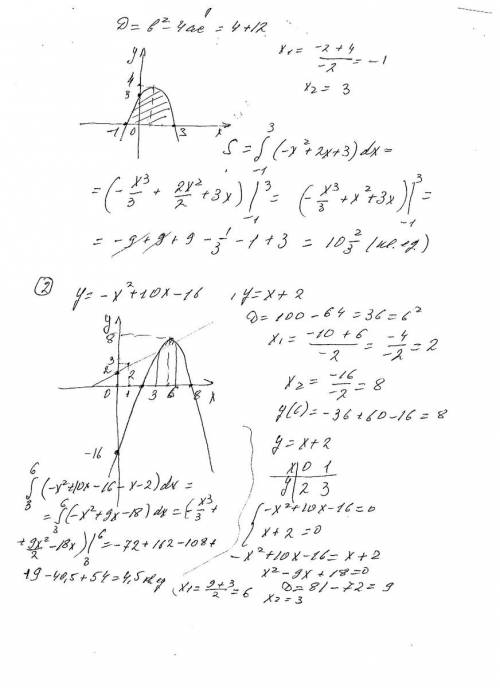 D = b² - 4ac = 4+12
x₁ = (-2+4)/(-2) = -1
x₂ = 3
y
4
3
-1 0 1 3 x
S = ∫₋₁³ (-x²+2x+3)dx =
= (-x³/3 + 2x²/2 + 3x)|₋₁³ = (-x³/3 + x² + 3x)|₋₁³ =
= -9 + 9 + 9 - 1/3 - 1 + 3 = 10 2/3 (кв. ед.)
② y = -x²+10x-16 , y = x+2
D = 100-64 = 36 = 6²
x₁ = (-10+6)/(-2) = -4/-2 = 2
x₂ = -16/-2 = 8
y(6) = -36+60-16 = 8
y = x+2
x 0 1
y 2 3
{ -x²+10x-16=0
x+2=0
-x²+10x-16 = x+2
x²-9x+18=0
D = 81-72 = 9
x₁ = (9+3)/2 = 6
x₂ = 3
y
8
3
2
0 1 2 3 6 8 x
-16
∫₃⁶ (-x²+10x-16-x-2)dx =
= ∫₃⁶ (-x²+9x-18)dx = (-x³/3 +
+ 9x²/2 - 18x)|₃⁶ = -72+162-108+
+9-40,5+54 = 4,5 кв.ед